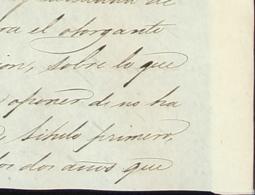 de
el otorgante
ion, sobre lo que
oponer di no ha
titulo primero,
dos años que